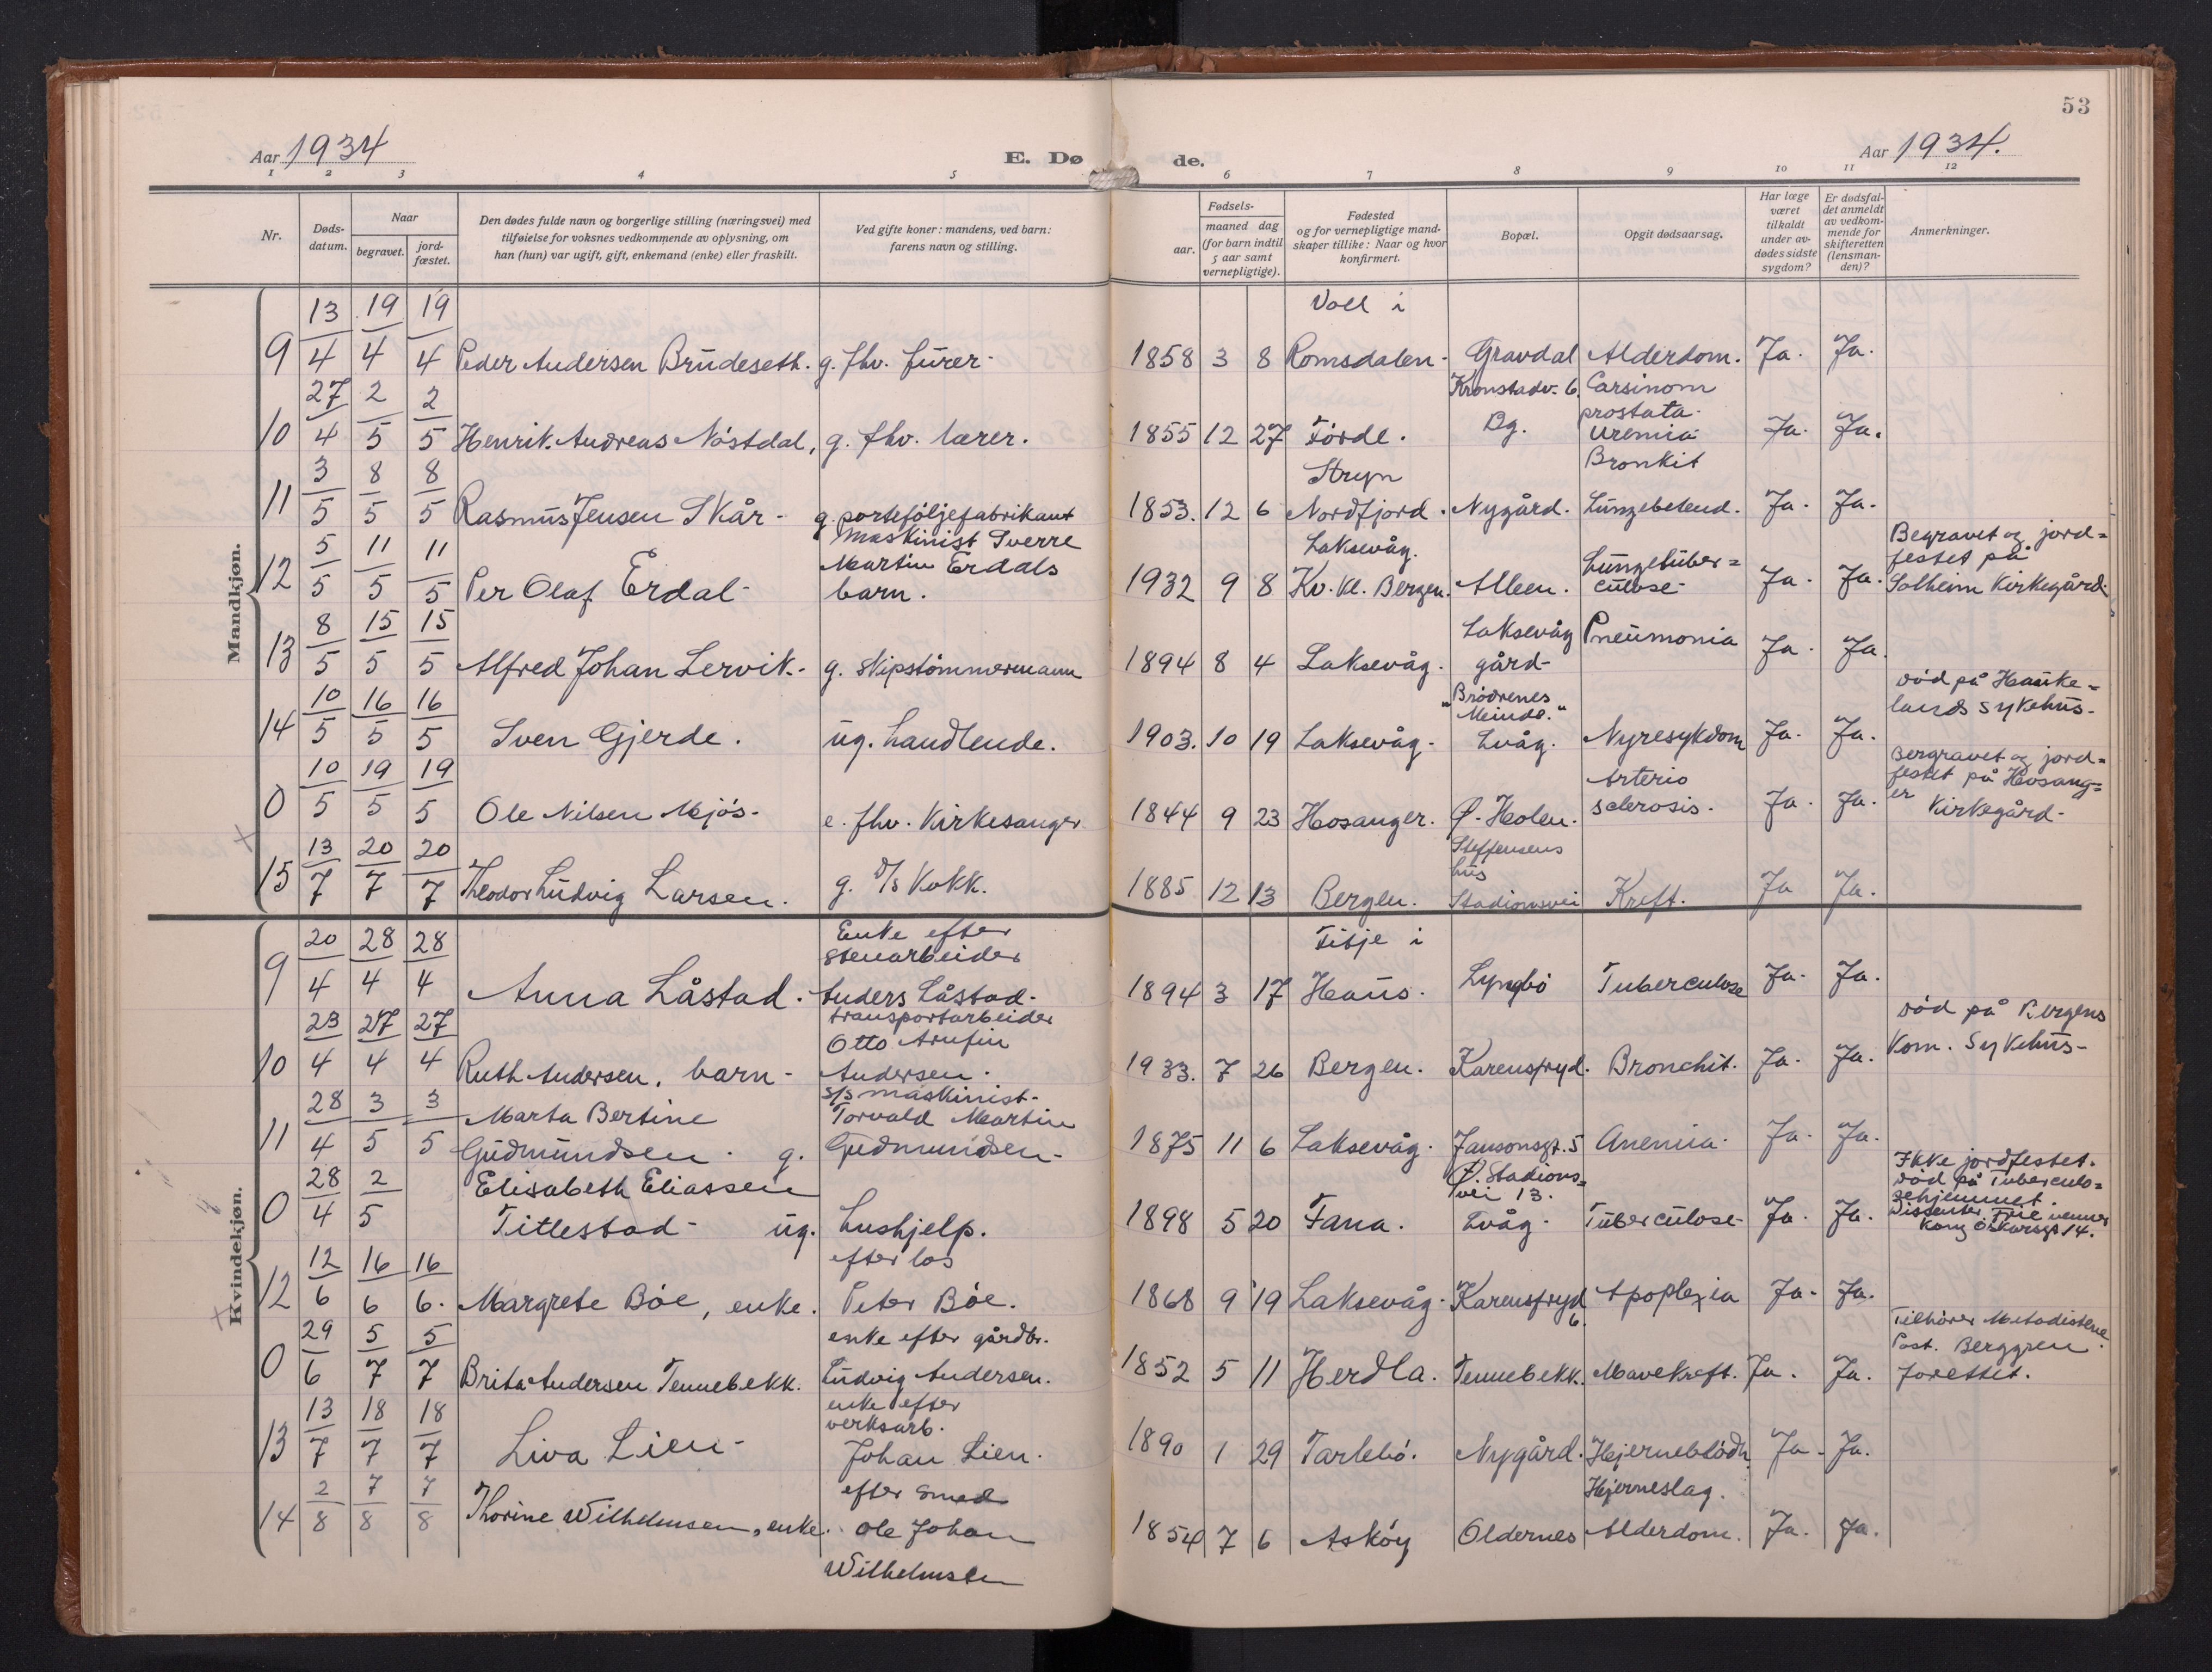 53
Aar 1934
E. Dø
de.
Aar 1934.
1 2 3 4 5 6 7 8 9 10 11 12
Nr.
Døds-
datum.
Naar
begravet.
jord-
fæstet.
Den dødes fulde navn og borgerlige stilling (næringsvei) med
tilføielse for voksnes vedkommende av oplysning, om
han (hun) var ugift, gift, enkemand (enke) eller fraskilt.
Ved gifte koner: mandens, ved barn:
farens navn og stilling.
Fødsels-
aar.
maaned dag
(for barn indtil
5 aar samt
vernepligtige).
Fødested
og for vernepligtige mand-
skaper tillike: Naar og hvor
konfirmert.
Bopæl.
Opgit dødsaarsag.
Har læge
været
tilkaldt
under av-
dødes sidste
sygdom?
Er dødsfal-
det anmeldt
av vedkom-
mende for
skifteretten
(lensman-
den)?
Anmerkninger.
Mandkjøn.
9 13/4 19/4 19/4 Peder Andersen Brudeseth. g. fhv. furer- 1858 3 8 Voll i
Romsdalen- Gravdal Alderdom. Ja. Ja.
10 27/4 2/5 2/5 Henrik Andreas Nøstdal, g. fhv. lærer. 1855 12 27 Førde. Kronstadv. 6.
Bg. Carsinom
prostata-
uremia- Ja. Ja.
11 3/5 8/5 8/5 Rasmus Jensen Skår- g. porteføljefabrikant 1853. 12 6 Stryn
Nordfjord. Nygård. Bronkit
Lungebetend. Ja. Ja.
12 5/5 11/5 11/5 Per Olaf Erdal- maskinist Sverre
Martin Erdals
barn. 1932 9 8 Laksevåg.
Kv. kl. Bergen. Alleen. Lungetuber=
culose- Ja. Ja. Begravet og jord=
festet på
Solheim Kirkegård.
13 8/5 15/5 15/5 Alfred Johan Lervik.- g. skipstømmermann 1894 8 4 Laksevåg. Laksevåg
gård- Pneumonia Ja. Ja.
14 10/5 16/5 16/5 Sven Gjerde. ug. handlende. 1903. 10 19 Laksevåg- "Brødrenes
Minde."
Lvåg. Nyresykdom Ja. Ja. død på Hauke=
lands sykehus-
0 10/5 19/5 19/5 Ole Nilsen Mjøs- e. fhv. Kirkesanger. 1844 9 23 Hosanger. Ø. Holen. Arterio
sclerosis. Ja. Ja. Bergravet og jord=
festet på Hosang=
er
Kirkegård-
15 13/7 20/7 20/7 Theodor Ludvig Larsen. g. D/s Kokk. 1885 12 13 Bergen. Steffensens
hus
Stadionsvei Kreft. Ja Ja.
Kvindekjøn.
9 20/4 28/4 28/4 Anna Låstad. Enke efter
stenarbeider
Anders Låstad- 1894 3 17 Titje i
Haus. Lyngbø Tuberculose Ja. Ja.
10 23/4 27/4 27/4 Ruth Andersen. barn- transportarbeider
Otto Arnfin
Andersen. 1933. 7 26 Bergen. Karensfryd. Bronchit. Ja. Ja. død på Bergens
Kom. Sykehus-
11 28/4 3/5 3/5 Marta Bertine
Gudmundsen. g. S/s maskinist-
Torvald Martin
Gudmundsen- 1875 11 6 Laksevåg. Jansonsgt. 5 Anemia. Ja. Ja.
0 28/4 2/5 Elisabeth Eliassen
Titlestad- ug. hushjelp. 1898 5 20 Fana. Ø. Stadions=
vei 13.
Lvåg. Tuberculose- Ja. Ja. Ikke jordfestet.
død på Tuberculo=
sehjemmet.
Dissenter. Frie venner
Kong Oskarsgt 14.
12 12/6 16/6 16/6. Margrete Bøe, enke. efter los
Peter Bøe. 1868 9 19 Laksevåg- Karensfryd
6. Apoplexia Ja. Ja.
0 29/6 5/7 5/7 Brita Andersen Tennebekk. enke efter gårdbr.
Ludvig Andersen. 1852 5 11 Herdla. Tennebekk. Mavekreft. Ja. Ja. Tilhører Metodistene.
Past. Berggren
forettet.
13 13/7 18/7 18/7 Liva Lien- enke efter
verksarb.
Johan Lien. 1890 1 29 Tarlebø. Nygård. Hjernebløðn. Ja- Ja.
14 2/8 7/8 7/8 Thorine Wilhelmsen, enke. efter smed
Ole Johan
Wilhelmsen 1854 7 6 Askøy Oldernes Hjerneslag.
Alderdom. Ja. Ja.